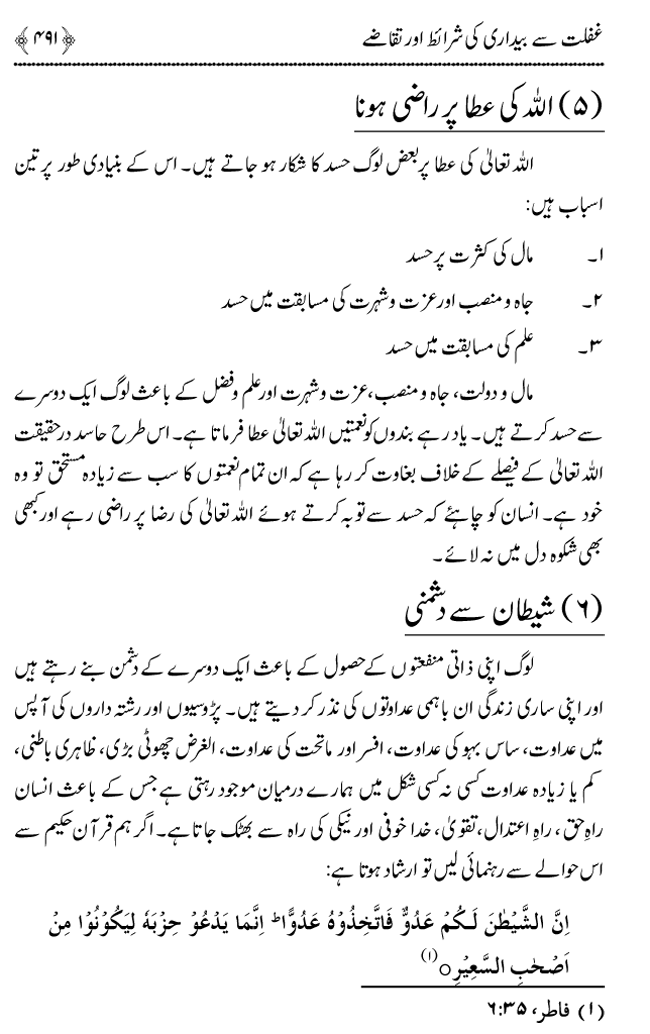 غفلت سے بیداری کی شرائط اور تقاضے ﴿۴۹۱﴾
(۵) اللہ کی عطا پر راضی ہونا
اللہ تعالیٰ کی عطا پر بعض لوگ حسد کا شکار ہو جاتے ہیں۔ اس کے بنیادی طور پر تین
اسباب ہیں:
۱۔ مال کی کثرت پر حسد
۲۔ جاہ و منصب اور عزت و شہرت کی مسابقت میں حسد
۳۔ علم کی مسابقت میں حسد
مال و دولت، جاہ و منصب، عزت و شہرت اور علم و فضل کے باعث لوگ ایک دوسرے
سے حسد کرتے ہیں۔ یاد رہے بندوں کو نعمتیں اللہ تعالیٰ عطا فرماتا ہے۔ اس طرح حاسد درحقیقت
اللہ تعالیٰ کے فیصلے کے خلاف بغاوت کر رہا ہے کہ ان تمام نعمتوں کا سب سے زیادہ مستحق تو وہ
خود ہے۔ انسان کو چاہئے کہ حسد سے توبہ کرتے ہوئے اللہ تعالیٰ کی رضا پر راضی رہے اور کبھی
بھی شکوہ دل میں نہ لائے۔
(۶) شیطان سے دشمنی
لوگ اپنی ذاتی منفعتوں کے حصول کے باعث ایک دوسرے کے دشمن بنے رہتے ہیں
اور اپنی ساری زندگی ان باہمی عداوتوں کی نذر کر دیتے ہیں۔ پڑوسیوں اور رشتہ داروں کی آپس
میں عداوت، ساس بہو کی عداوت، افسر اور ماتحت کی عداوت، الغرض چھوٹی بڑی، ظاہری باطنی،
کم یا زیادہ عداوت کسی نہ کسی شکل میں ہمارے درمیان موجود رہتی ہے جس کے باعث انسان
راہِ حق، راہِ اعتدال، تقویٰ، خدا خوفی اور نیکی کی راہ سے بھٹک جاتا ہے۔ اگر ہم قرآن حکیم سے
اس حوالے سے رہنمائی لیں تو ارشاد ہوتا ہے:
اِنَّ الشَّيْطٰنَ لَـكُمْ عَدُوٌّ فَاتَّخِذُوْهُ عَدُوًّا ؕ اِنَّمَا يَدْعُوْ حِزْبَهٗ لِيَكُوْنُوْا مِنْ
اَصْحٰبِ السَّعِيْرِ ○(۱)
(۱) فاطر، ۳۵:۶